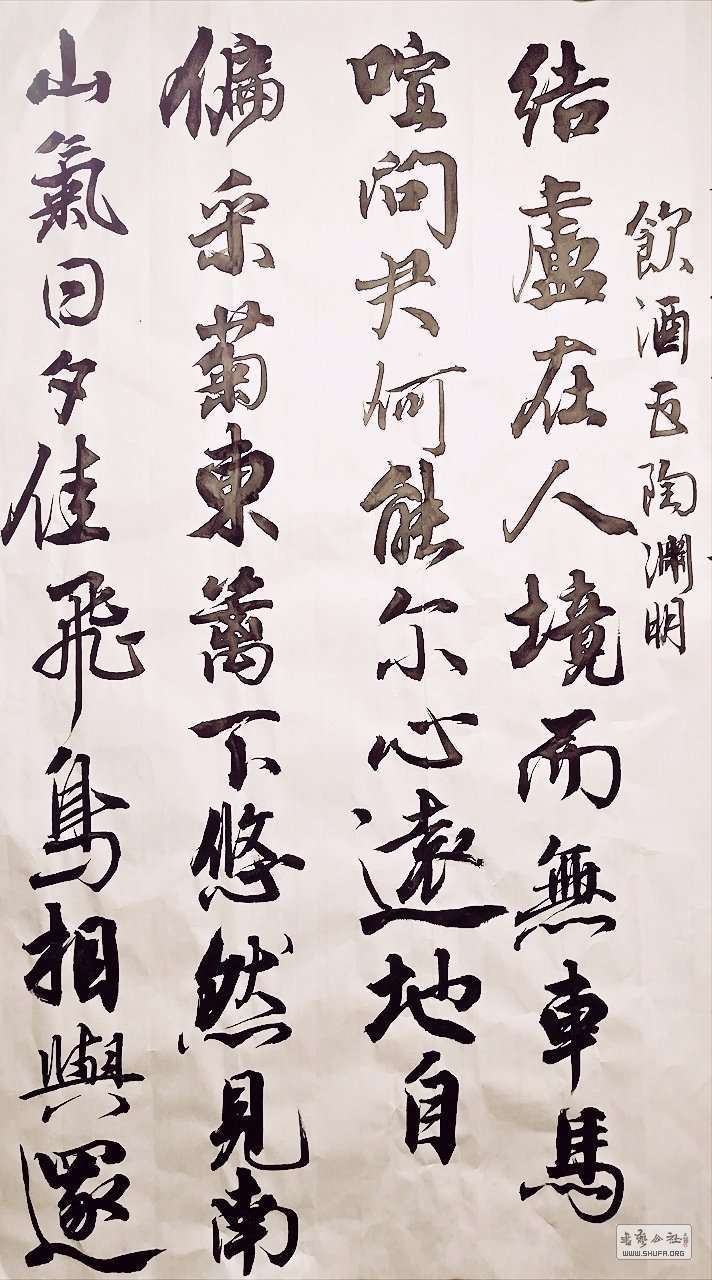 飲酒五陶淵明
结盧在人境而無車馬
喧问君何能尔心遠地自
偏采菊東篱下悠然見南
山氣日夕佳飛鳥相與還
书艺公社
WWW.SHUFA.ORG